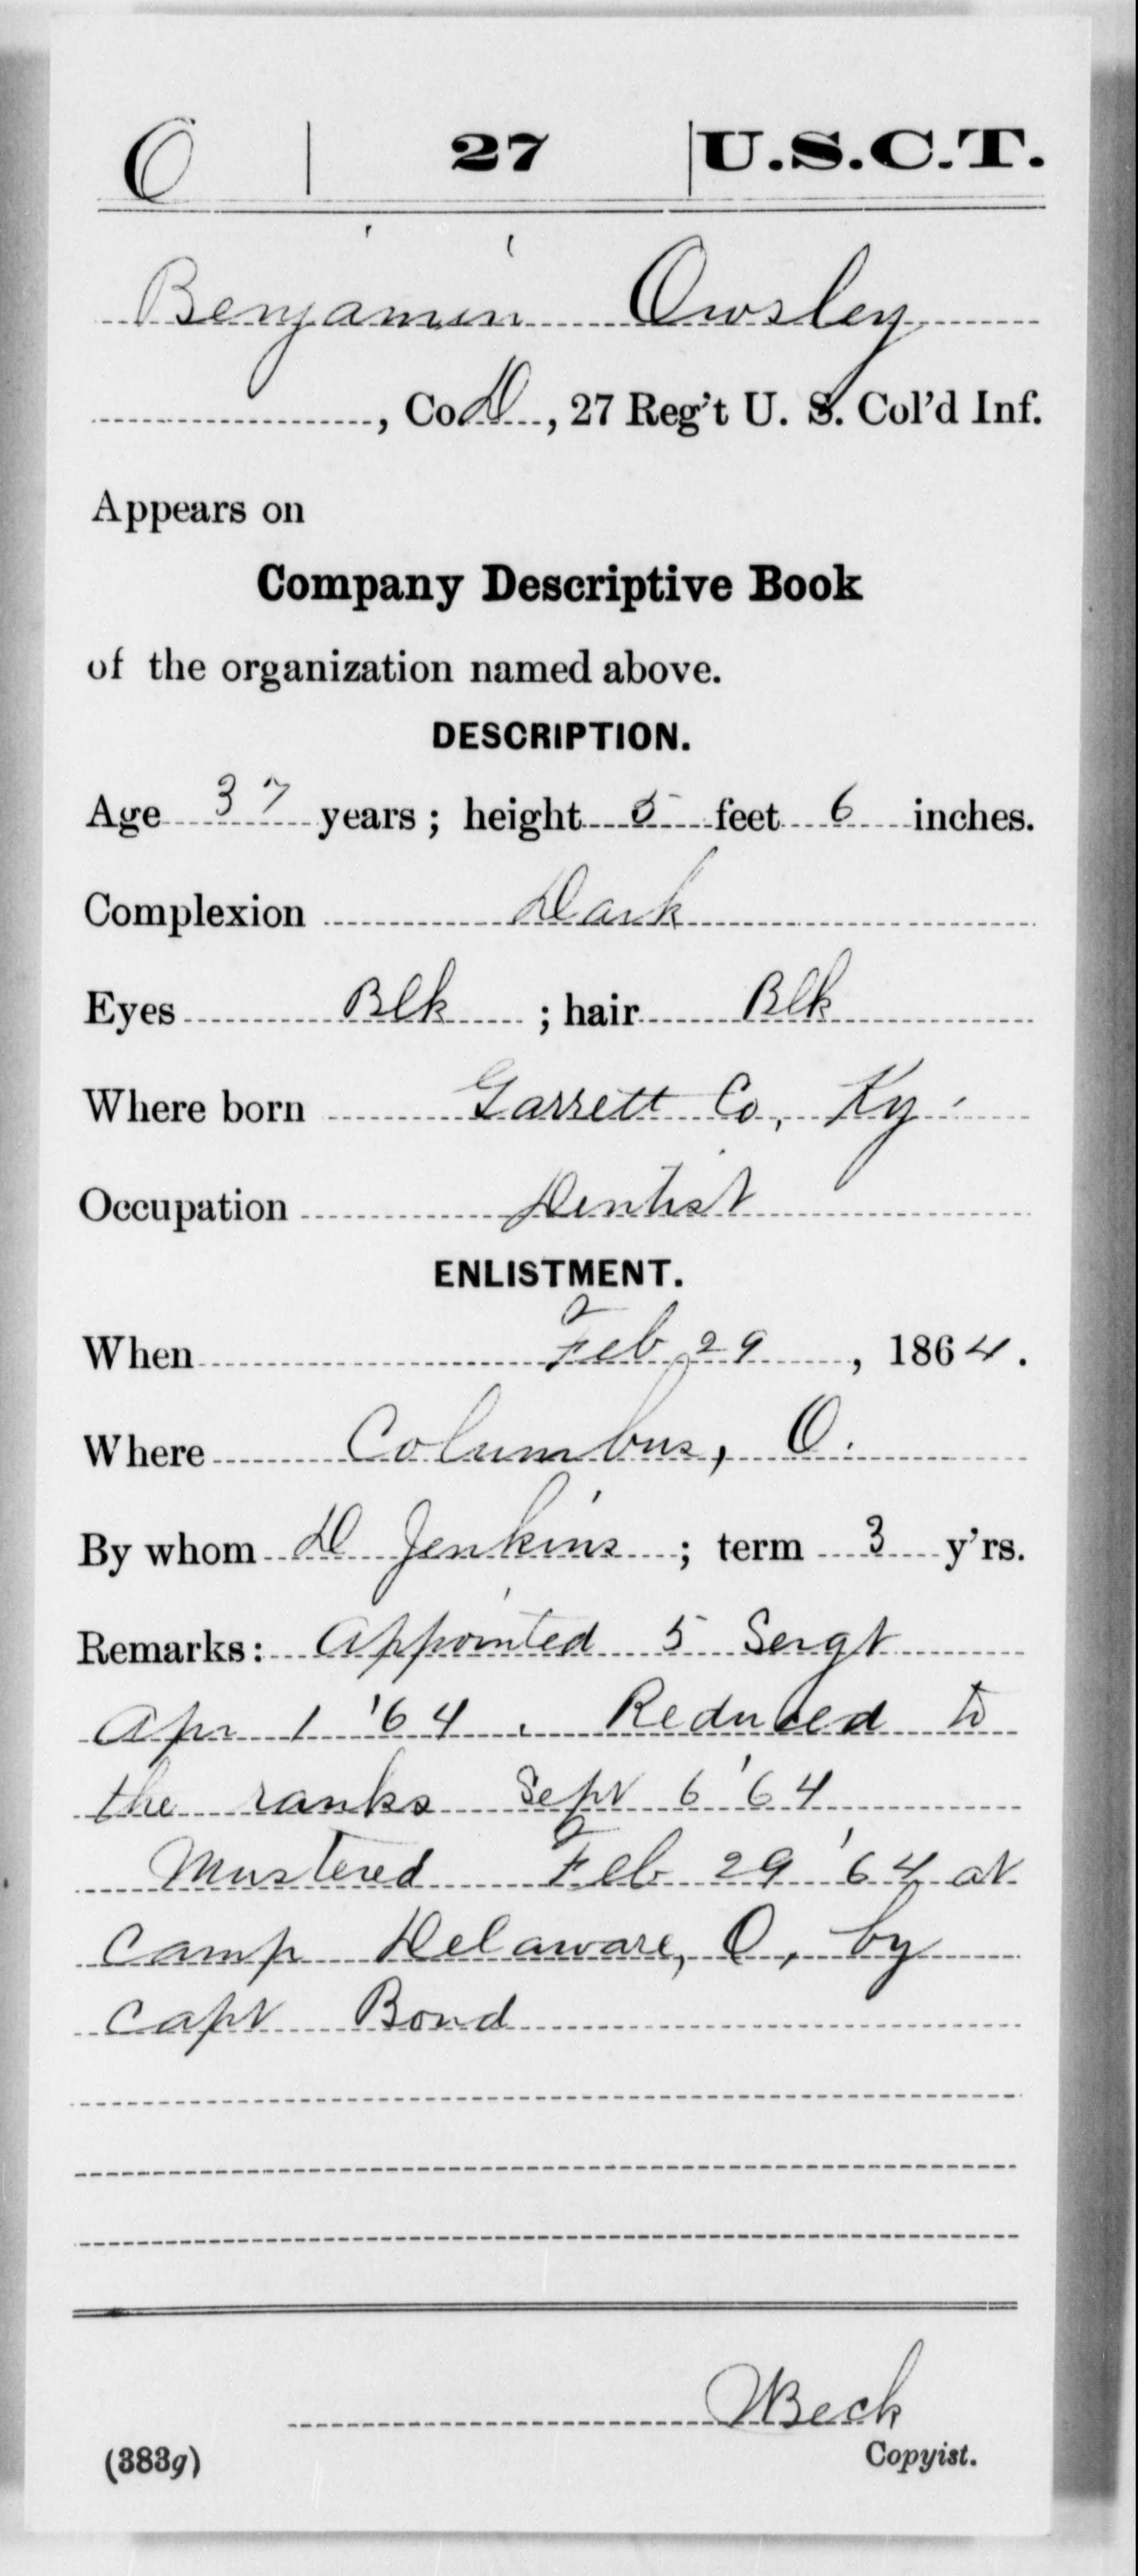 O | 27 | U.S.C.T.
Benjamin Owsley
, Co. D, 27 Reg't U. S. Col'd Inf.
Appears on
Company Descriptive Book
of the organization named above.
DESCRIPTION.
Age 37 years; height 5 feet 6 inches.
Complexion Dark
Eyes Blk ; hair Blk
Where born Garrett Co, Ky.
Occupation Dentist
ENLISTMENT.
When Feb 29, 1864.
Where Columbus, O.
By whom D Jenkins ; term 3 y'rs.
Remarks: Appointed 5 Sergt
Apr 1 '64. Reduced to
the ranks Sept 6 '64
Mustered Feb 29 '64 at
Camp Delaware, O, by
Capt Bond
Beck
(383g) Copyist.